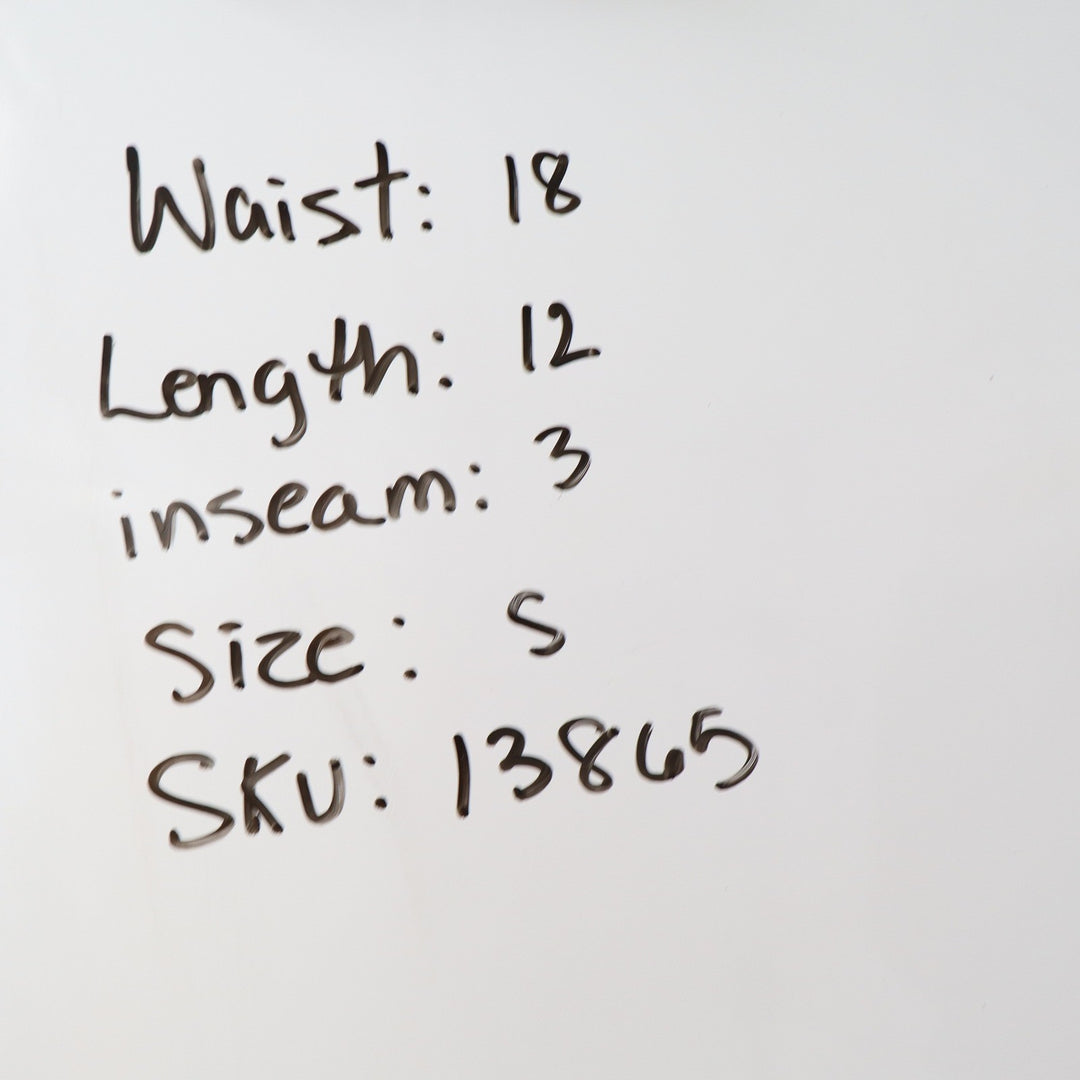 Waist: 18
Length: 12
inseam: 3
Size: S
SKU: 13865